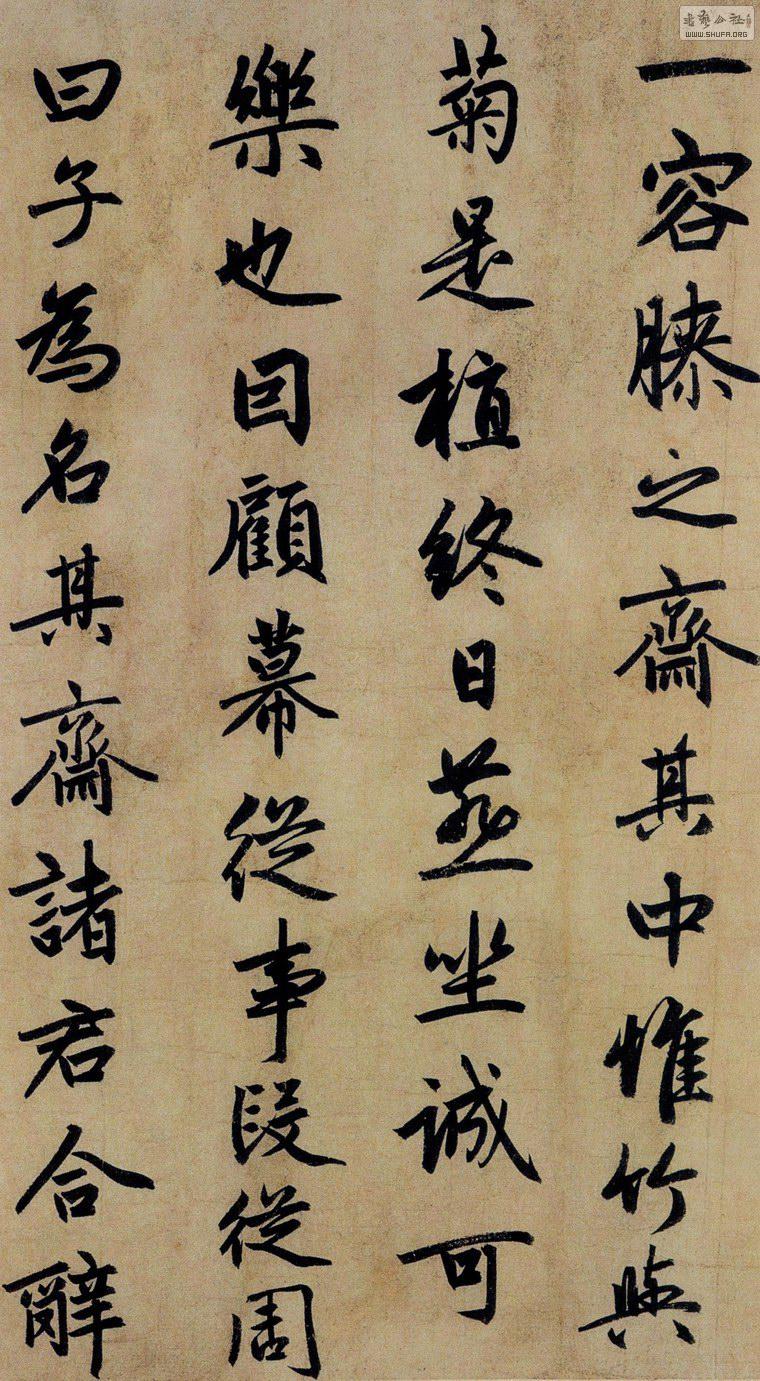 一容膝之齋其中惟竹與
菊是植終日燕坐誠可
樂也回顧幕從事段從周
曰子為名其齋諸君合辭
WWW.SHUFA.ORG